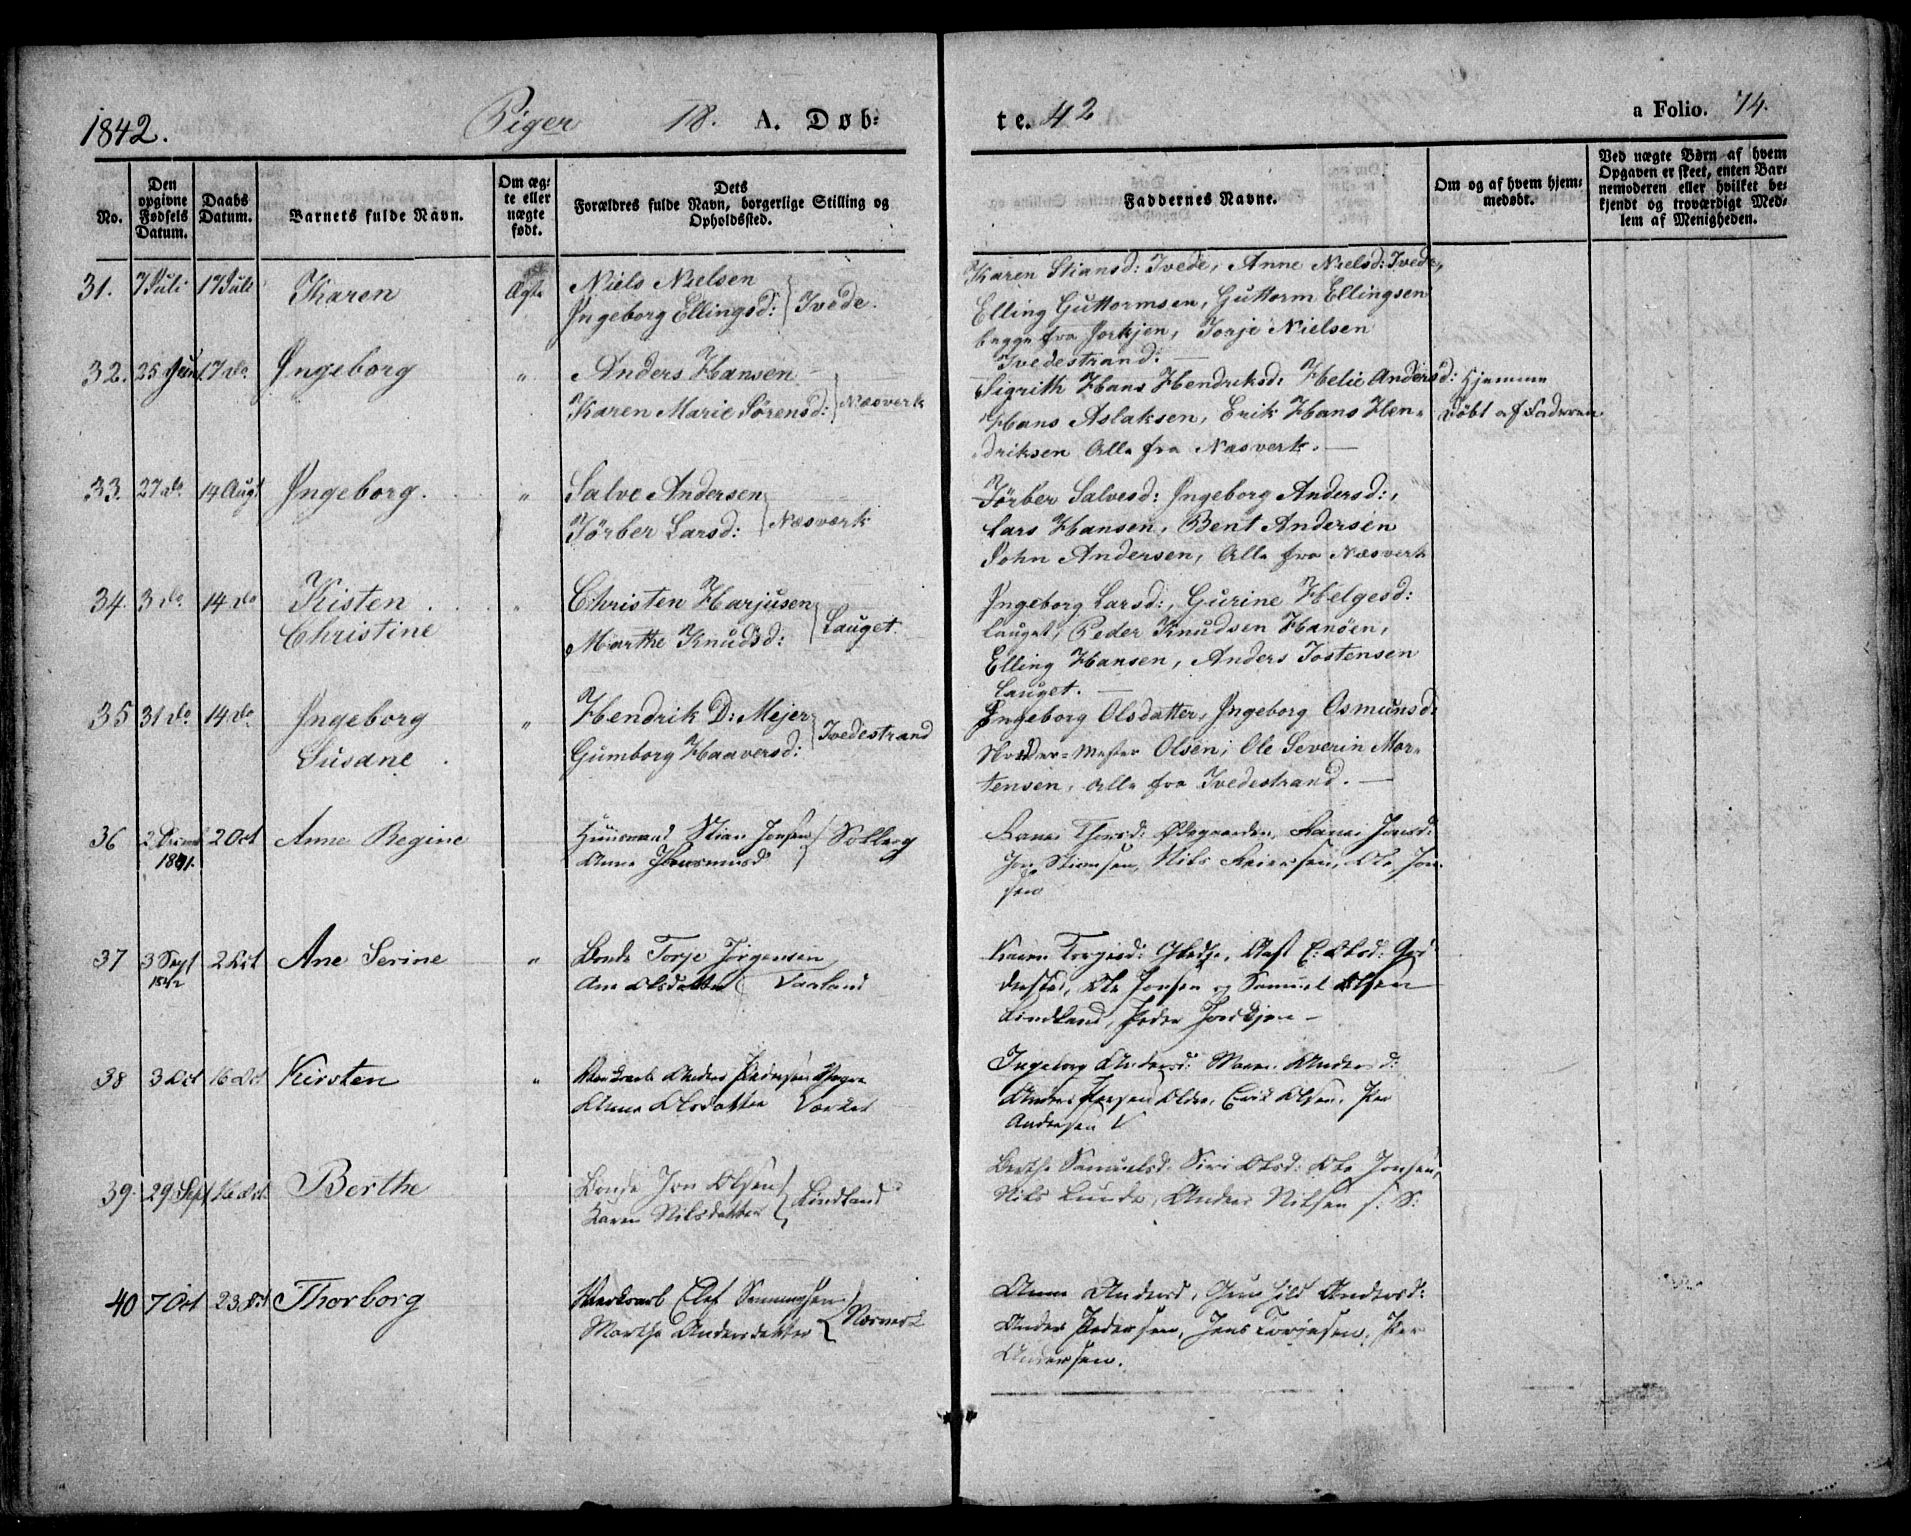 1842. Piger 18. A. Døb-
te. 42 a Folio. 74.
No.
Den opgivne Fødsels Datum.
Daabs Datum.
Barnets fulde Navn.
Om ægte eller uægte født.
Dets Forældres fulde Navn, borgerlige Stilling og Opholdssted.
Faddernes Navne.
Om og af hvem hjemmedøbt.
Ved uægte Børn af hvem Opgaven er skeet, enten Barnemoderen eller hvilket bekjendt og troværdigt Medlem af Menigheden.
31. 7 Juli 17 Juli Karen Ægte Niels Nielsen
Ingeborg Ellingsd: Tvede.
Karen Stiansd: Tvede, Anne Nielsd: Tvede,
Elling Guttormsen, Guttorm Ellingsen
begge fra Jorkjen, Torje Nielsen
Tvedestrand. —
32. 25 Juni 17 do. Ingeborg " Anders Hansen
Karen Marie Sørensd: Næsverk
Sigrith Hans Hendriksd: Helie Andersd:
Hans Aslaksen, Erik Hans Hen-
driksen Alle fra Næsverk. —
Hjemme
Døbt af Faderen
33. 27 do. 14 Augt Ingeborg. " Salve Andersen
Tørber Larsd: Næsverk
Tørber Salvesd: Ingeborg Andersd:,
Lars Hansen, Bent Andersen
John Andersen, Alle fra Næsverk
34. 3 do. 14 do Kisten
Christine
" Christen Harjusen
Marthe Knudsd: Lauget
Ingeborg Larsd:, Gurine Helgesd:
Lauget, Peder Knudsen Hanøen,
Elling Hansen, Anders Jostensen
Lauget. —
35 31 do 14 do. Ingeborg
Susane
" Hendrik D: Mejer
Gumborg Haaversd: Tvedestrand
Ingeborg Olsdatter, Ingeborg Osmunsd:
Olsen, Ole Severin Mor-
tensen, Alle fra Tvedestrand. —
36 2 1841. 2 Oct Anne Regine
Huusmand Stian Jonsen Solberg
Anne
Thorsd: Jonsd:
Jon Stiansen, Nils Ole Jon-
sen
37 3 Sept 1842 2 Oct Ane Serine " Bonde Torje Jørgensen
Ane Olsdatter Vaaland
Karen Torgiesd:
Ole Jonsen og Samuel Olsen
Lindland, Peder
38 3 Oct 16 Oct Kirsten " Anders Pedersen
Anne Olsdatter
Ingeborg Andersd: Maren Andersd:
Erik Olsen, Per
Andersen
39. 29 Sept 16 Oct. Berthe Bonde Jon Olsen
Karen Nilsdatter Lindland
Berthe Samuelsd: Siri Olsd: Ole Jonsen,
Nils Lunde, Anders Nilsen
40 7 Oct 23 Oct Thorborg
Marthe Andersdatter Næsverk
Anne Andersd, Gunhild Andersd:
Anders Pedersen, Jens Torjesen, Per
Andersen.